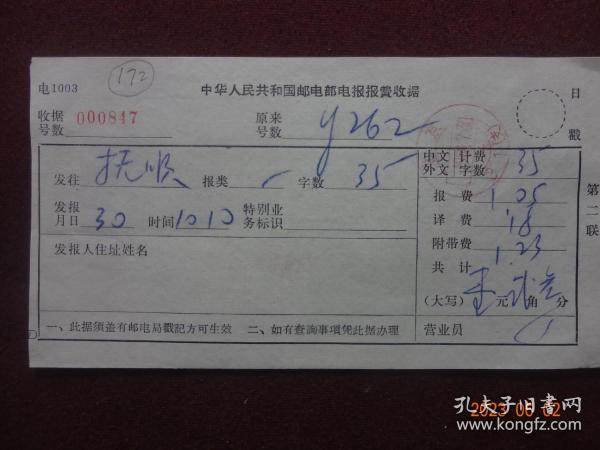 电1003
172
中华人民共和国邮电部电报报费收据
日
戳
收据号数 000847
原来号数 y262
发往 抚顺 报类 字数 35
中文 外文 计费字数 35
发报月日 30 时间 1010 特别业务标识
报费 1.05
译费 .18
附带费
共计 1.23
发报人住址姓名
(大写) 元 角 分
一、此据须盖有邮电局戳记方可生效 二、如有查询事项凭此据办理
营业员
第二联
2023 06 02
孔夫子旧书网
www.kongfz.com